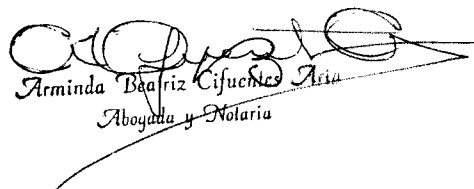 Arminda Beatriz Cifuentes
Abogada y Notaria